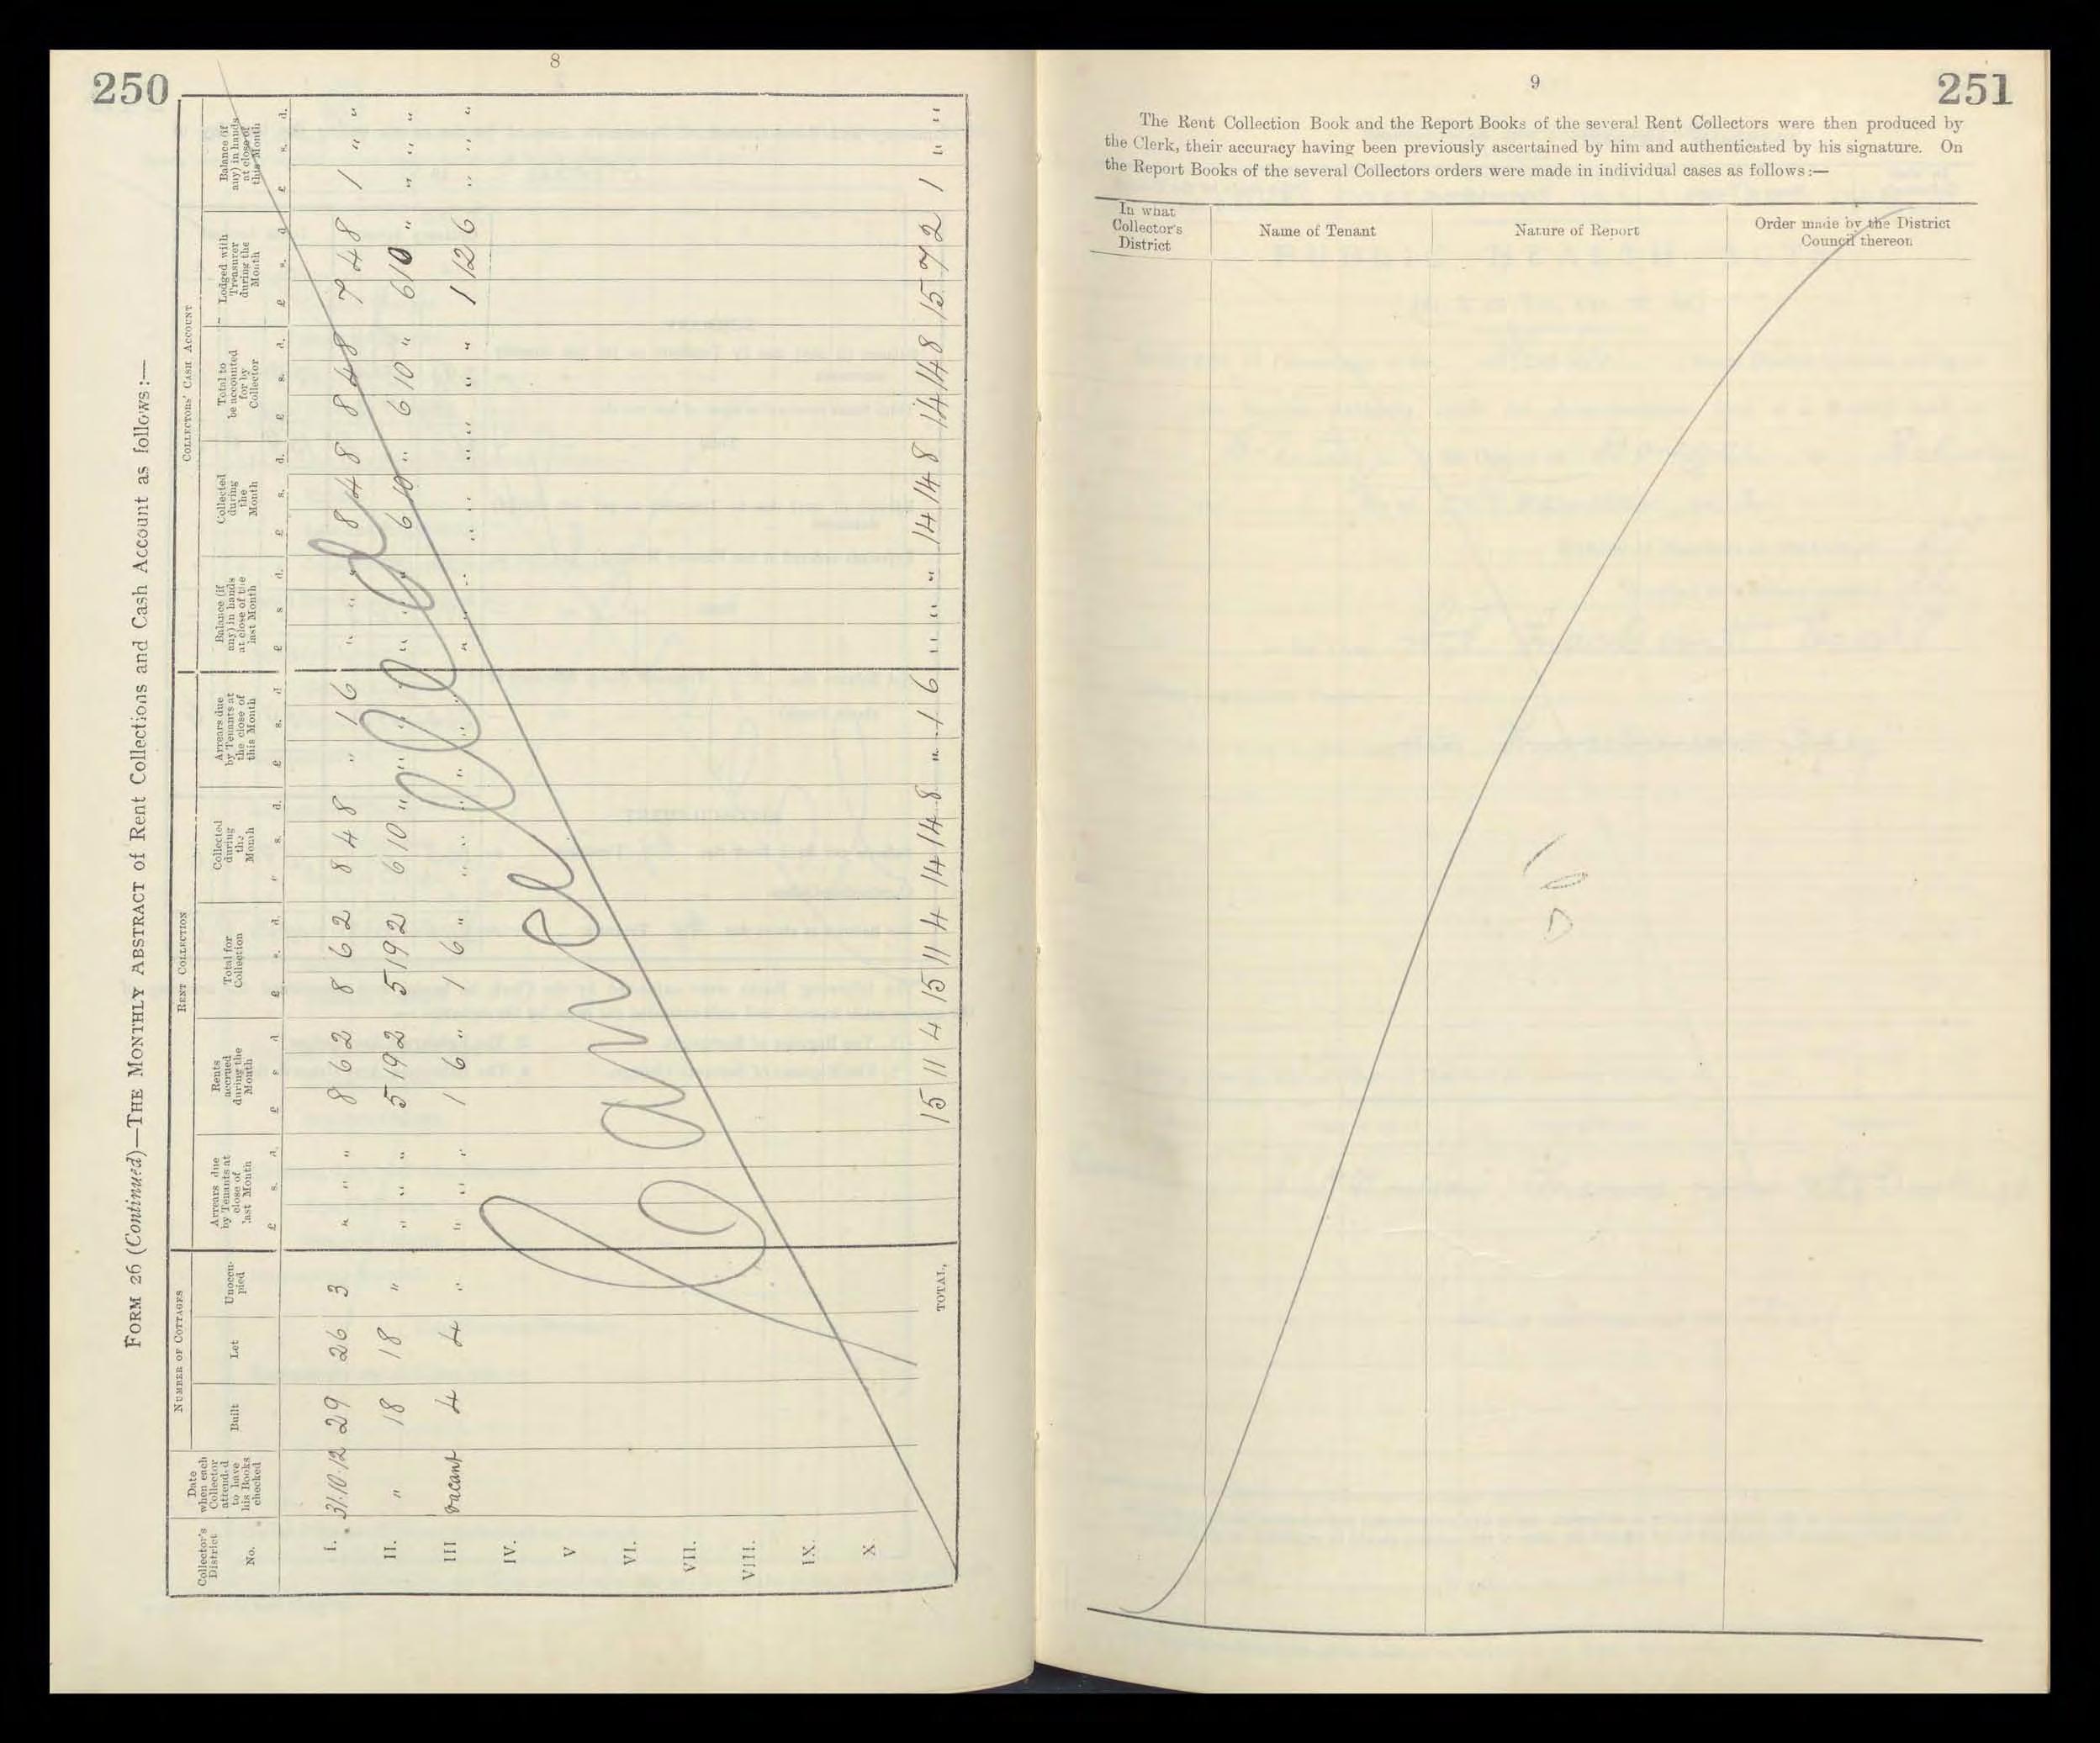 250
8
FORM 26 (Continued)—THE MONTHLY ABSTRACT of Rent Collections and Cash Account as follows:—
Collector's District No.
Date when each Collector attended to have his Books checked
NUMBER OF COTTAGES
Built
Let
Unoccu-pied
RENT COLLECTION
Arrears due by Tenants at close of last Month
£ s. d.
Rents accrued during the Month
£ s. d.
Total for Collection
£ s. d.
Collected during the Month
£ s. d.
Arrears due by Tenants at the close of this Month
£ s. d.
COLLECTORS' CASH ACCOUNT
Balance (if any) in hands at close of the last Month
£ s d.
Collected during the Month
£ s. d.
Total to be accounted for by Collector
£ s. d.
Lodged with Treasurer during the Month
£ s. d.
Balance (if any) in hands at close of this Month
£ s. d.
I. 31.10.12 29 26 3 " " " 8 6 2 8 6 2 8 4 8 " 1 6 " " " 8 4 8 8 4 8 7 4 8 1 " "
II. " 18 18 " " " " 5 19 2 5 19 2 6 10 " " " " " " " 6 10 " 6 10 " 6 10 " " " "
III vacant 4 4 " " " " 1 6 " 1 6 " " " " " " " " " " " " " " " " 1 12 6 " " "
IV.
V
VI.
VII.
VIII.
IX.
X.
TOTAL, 15 11 4 15 11 4 14 14 8 " 1 6 " " " 14 14 8 14 14 8 15 7 2 1 " "
Cancelled
251
9
The Rent Collection Book and the Report Books of the several Rent Collectors were then produced by
the Clerk, their accuracy having been previously ascertained by him and authenticated by his signature. On
the Report Books of the several Collectors orders were made in individual cases as follows:—
In what Collector's District
Name of Tenant
Nature of Report
Order made by the District Council thereon